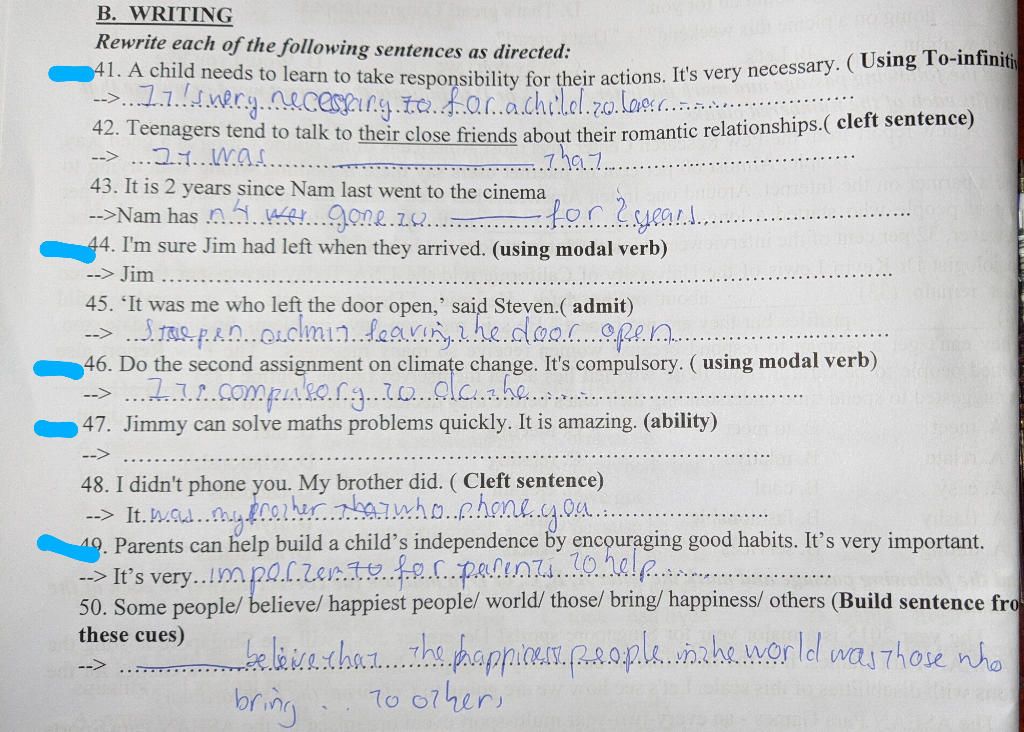 B. WRITING
Rewrite each of the following sentences as directed:
41. A child needs to learn to take responsibility for their actions. It's very necessary. ( Using To-infiniti
-->...It's very necessary to for a child to lear......
42. Teenagers tend to talk to their close friends about their romantic relationships.( cleft sentence)
--> ...It was.................that......
43. It is 2 years since Nam last went to the cinema
-->Nam has n't gone to for 2 years......
44. I'm sure Jim had left when they arrived. (using modal verb)
--> Jim ......
45. ‘It was me who left the door open,’ said Steven.( admit)
--> ...admit leaving the door open......
46. Do the second assignment on climate change. It's compulsory. ( using modal verb)
--> ...It's compulsory to do the......
47. Jimmy can solve maths problems quickly. It is amazing. (ability)
--> ......
48. I didn't phone you. My brother did. ( Cleft sentence)
--> It was my brother that who phone you......
49. Parents can help build a child’s independence by encouraging good habits. It’s very important.
--> It’s very...for parents to help......
50. Some people/ believe/ happiest people/ world/ those/ bring/ happiness/ others (Build sentence fro
these cues)
--> ...that the people in the world was those who
bring ... to others